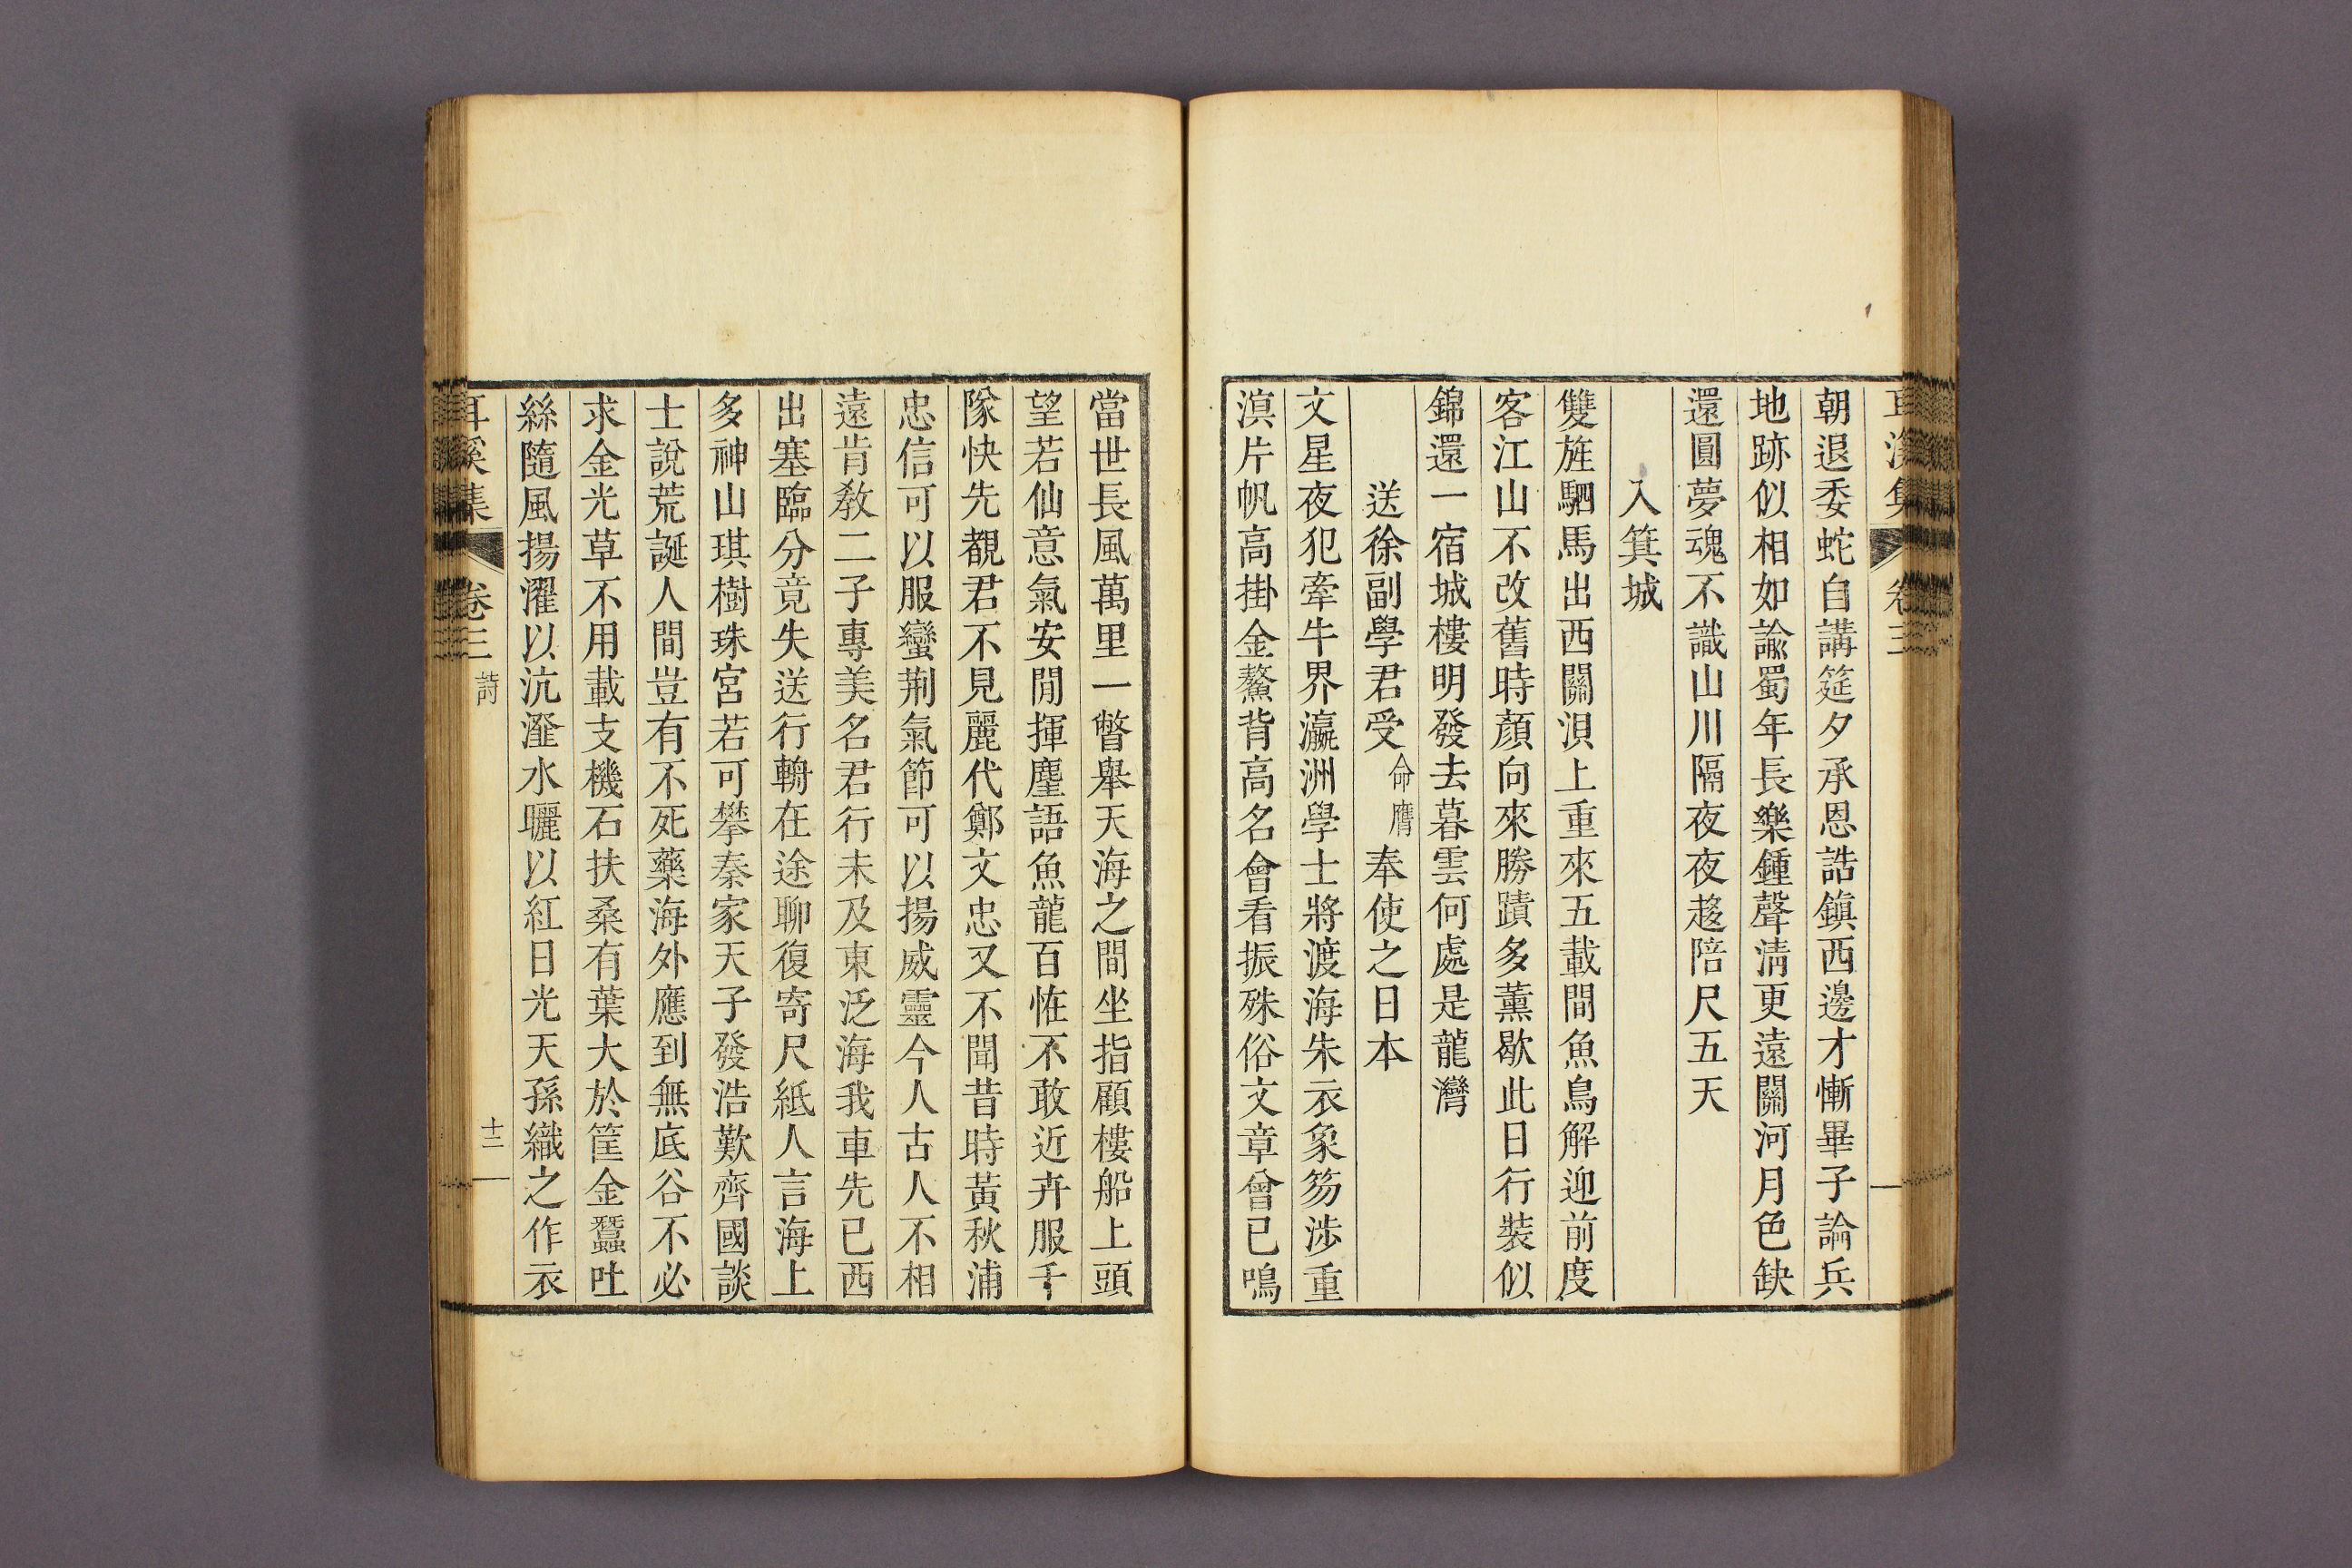 朝退委蛇自講筵夕承恩誥鎭西邊才慚畢子論兵
地跡似相如諭蜀年長樂鍾聲淸更遠關河月色缺
還圓夢魂不識山川隔夜夜趍陪尺五天
入箕城
雙旌駟馬出西關浿上重來五載間魚鳥解迎前度
客江山不改舊時顏向來勝蹟多薰歇此日行裝似
錦還一宿城樓明發去暮雲何處是龍灣
送徐副學君受命膺奉使之日本
文星夜犯牽牛界瀛洲學士將渡海朱衣象笏涉重
溟片帆高掛金鰲背高名會看振殊俗文章曾已鳴
當世長風萬里一瞥舉天海之間坐指顧樓船上頭
望若仙意氣安閒揮麈語魚龍百恠不敢近卉服千
隊快先覩君不見麗代鄭文忠又不聞昔時黃秋浦
忠信可以服蠻荆氣節可以揚威靈今人古人不相
遠肯敎二子專美名君行未及東泛海我車先已西
出塞臨分竟失送行輈在途聊復寄尺紙人言海上
多神山琪樹珠宮若可攀秦家天子發浩歎齊國談
士說荒誕人間豈有不死藥海外應到無底谷不必
求金光草不用載支機石扶桑有葉大於筐金蠶吐
絲隨風揚濯以沆瀣水曬以紅日光天孫織之作衣
耳溪集 卷三 詩 十二